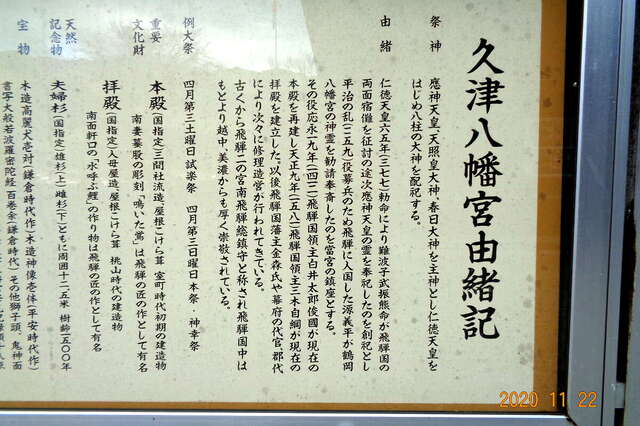 久津八幡宮由緒記
祭神
應神天皇、天照皇大神、春日大神を主神とし仁徳天皇を
はじめ八柱の大神を配祀する。
由緒
仁徳天皇六五年(三七七)勅命により難波子武振熊命が飛騨国の
両面宿儺を征討の途次應神天皇の霊を奉祀したのを創祀とし
平治の乱(一一五九)役募兵のため飛騨に入国した源義平が鶴岡
八幡宮の神霊を勧請奉斎したのを當宮の鎮座とする。
その後応永一九年(一四一二)飛騨国領主白井太郎俊國が現在の
本殿を再建し天正九年(一五八一)飛騨国領主三木自綱が現在の
拝殿を建立した。以後飛騨国藩主金森氏や幕府の代官、郡代
により次々に修理造営が行われてきている。
古くから飛騨二の宮南飛騨総鎮守と称され飛騨国中は
もとより越中、美濃からも厚く崇敬されている。
例大祭
四月第三土曜日試楽祭 四月第三日曜日本祭・神幸祭
重要
文化財
本殿(国指定)三間社流造、屋根こけら葺 室町時代初期の建造物
南妻蟇股の彫刻「鳴いた鴬」は飛騨の匠の作として有名
拝殿(国指定)入母屋造、屋根こけら葺 桃山時代の建造物
南面軒口の「水呼ぶ鯉」の作り物は飛騨の匠の作として有名
天然
記念物
夫婦杉(国指定)雄杉(上)雌杉(下)ともに周囲十二・五米 樹齢一五〇〇年
宝物
木造高麗犬壱対(鎌倉時代作)木造神像壱体(平安時代作)
書写大般若波羅密陀経 百巻余(鎌倉時代)その他獅子頭、鬼神面
2020 11 22